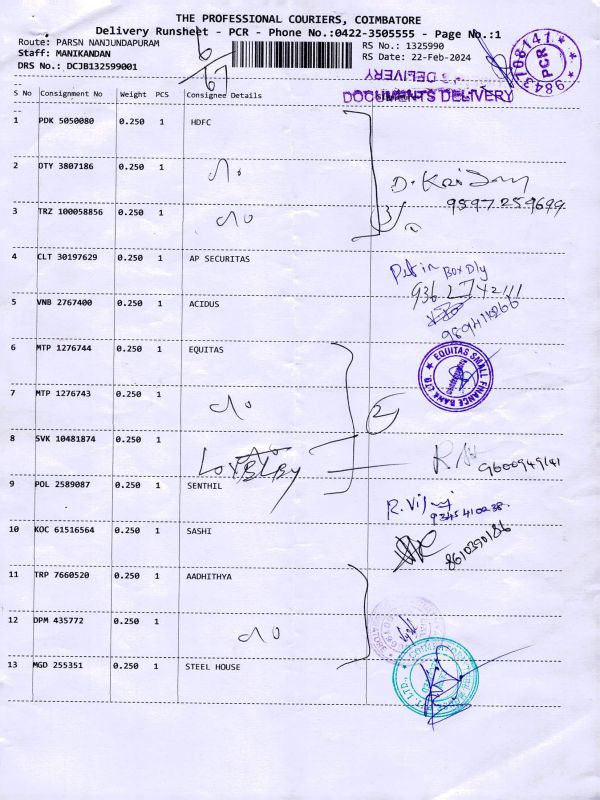 THE PROFESSIONAL COURIERS, COIMBATORE
Delivery Runsheet - PCR - Phone No.:0422-3505555 - Page No.:1
Route: PARSN NANJUNDAPURAM
RS No.: 1325990
Staff: MANIKANDAN
RS Date: 22-Feb-2024
DRS No.: DCJB132599001
6/67
DELIVERY
DOCUMENTS DELIVERY
9843708141
PCR
S No Consignment No Weight PCS Consignee Details
1 PDK 5050080 0.250 1 HDFC
2 DTY 3807186 0.250 1
3 TRZ 100058856 0.250 1
4 CLT 30197629 0.250 1 AP SECURITAS
Put in Box Dly
5 VNB 2767400 0.250 1 ACIDUS
6 MTP 1276744 0.250 1 EQUITAS
EQUITAS SMALL FINANCE BANK LTD.
7 MTP 1276743 0.250 1
2
8 SVK 10481874 0.250 1
9600949141
9 POL 2589087 0.250 1 SENTHIL
10 KOC 61516564 0.250 1 SASHI
8610290186
11 TRP 7660520 0.250 1 AADHITHYA
12 DPM 435772 0.250 1
13 MGD 255351 0.250 1 STEEL HOUSE